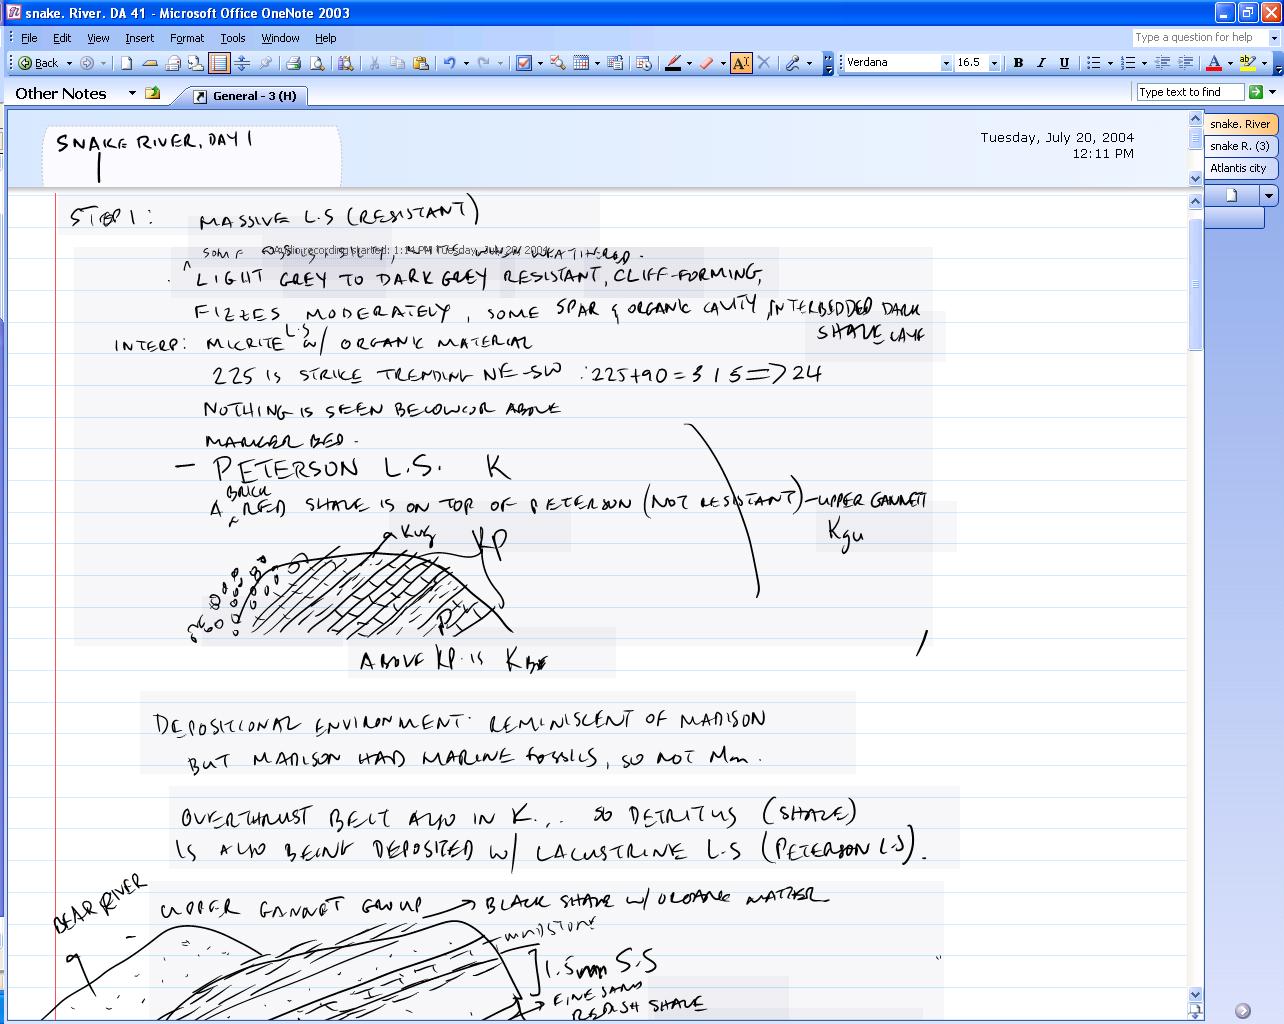 snake. River. DA 41 - Microsoft Office OneNote 2003
File Edit View Insert Format Tools Window Help
Type a question for help
Back
Verdana 16.5 B I U
Other Notes
General - 3 (H)
Type text to find
SNAKE RIVER, DAY 1
Tuesday, July 20, 2004
12:11 PM
snake. River
snake R. (3)
Atlantis city
STOP 1: MASSIVE L.S (RESISTANT)
Audio recording started: 1:14 PM Tuesday, July 20, 2004
SOME WHEN WEATHERED.
LIGHT GREY TO DARK GREY RESISTANT, CLIFF-FORMING,
FIZZES MODERATELY, SOME SPAR & ORGANIC CAVITY, INTERBEDDED DARK
SHALE
L.S
INTERP: MICRITE w/ ORGANIC MATERIAL
225 IS STRIKE TRENDING NE-SW ∴225+90=315=>24
NOTHING IS SEEN BELOW OR ABOVE
MARKER BED.
- PETERSON L.S. K
BRICK
A ^ RED SHALE IS ON TOP OF PETERSON (NOT RESISTANT) - UPPER GANNETT
Kgu
KP
ABOVE KP IS
DEPOSITIONAL ENVIRONMENT: REMINISCENT OF MADISON
BUT MADISON HAD MARINE FOSSILS, SO NOT Mm.
OVERTHRUST BELT ALSO IN K... SO DETRITUS (SHALE)
IS ALSO BEING DEPOSITED w/ LACUSTRINE L.S (PETERSON L.S).
BEAR RIVER
UPPER GANNET GROUP → BLACK SHALE w/ ORGANIC MATTER
MUDSTONE
1.5mm S.S
FINE SAND
REDISH SHALE